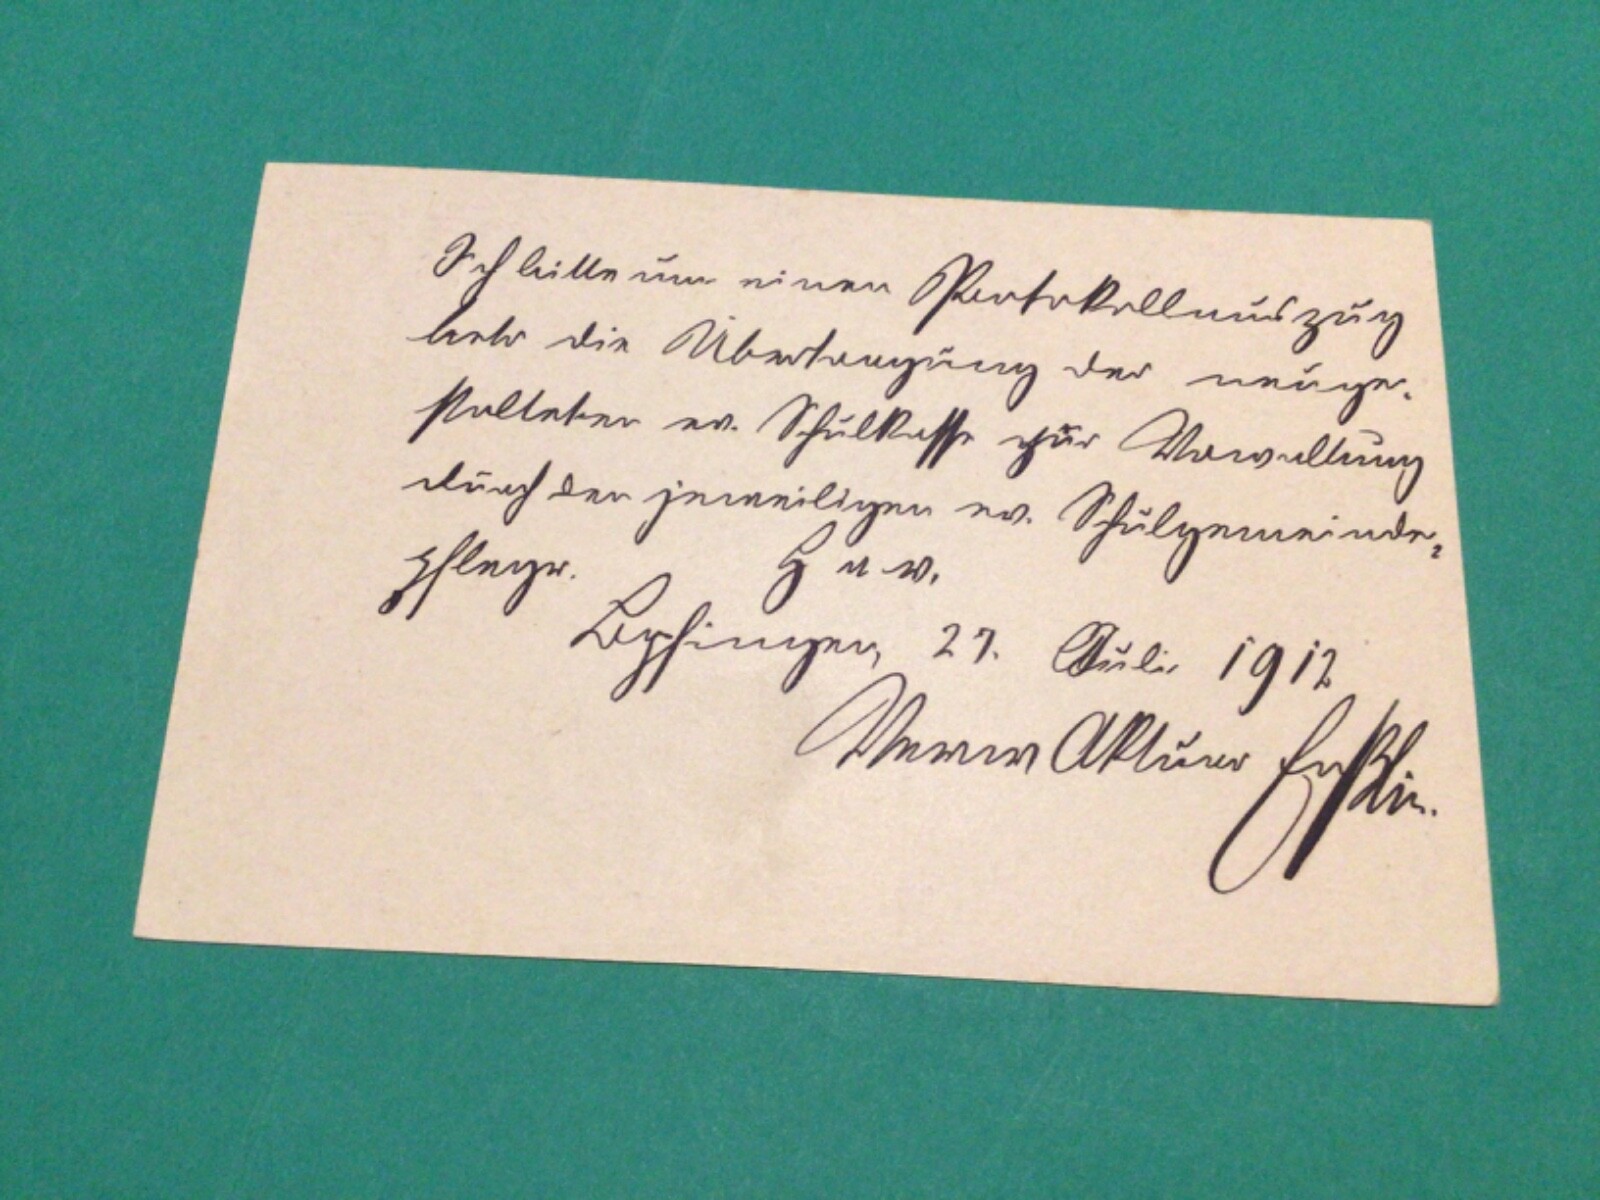 Ich bitte um einen Protokollauszug
betr die Übertragung der neuge-
stalteten ev. Schulkasse zur Verwaltung
durch den jeweiligen ev. Schulgemeinde-
pfleger. H u v.
Bopfingen, 27. Juli 1912
Verw Aktuar